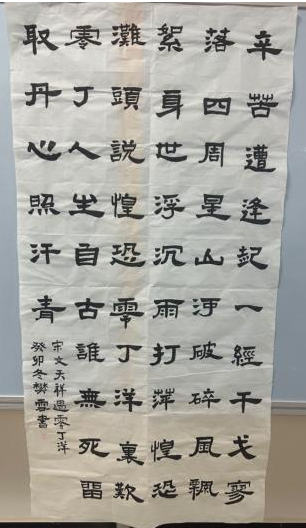 辛苦遭逢起一經干戈寥
落四周星山河破碎風飄
絮身世浮沉雨打萍惶恐
灘頭說惶恐零丁洋裏歎
零丁人生自古誰無死留
取丹心照汗青
宋文天祥過零丁洋
癸卯冬樊書